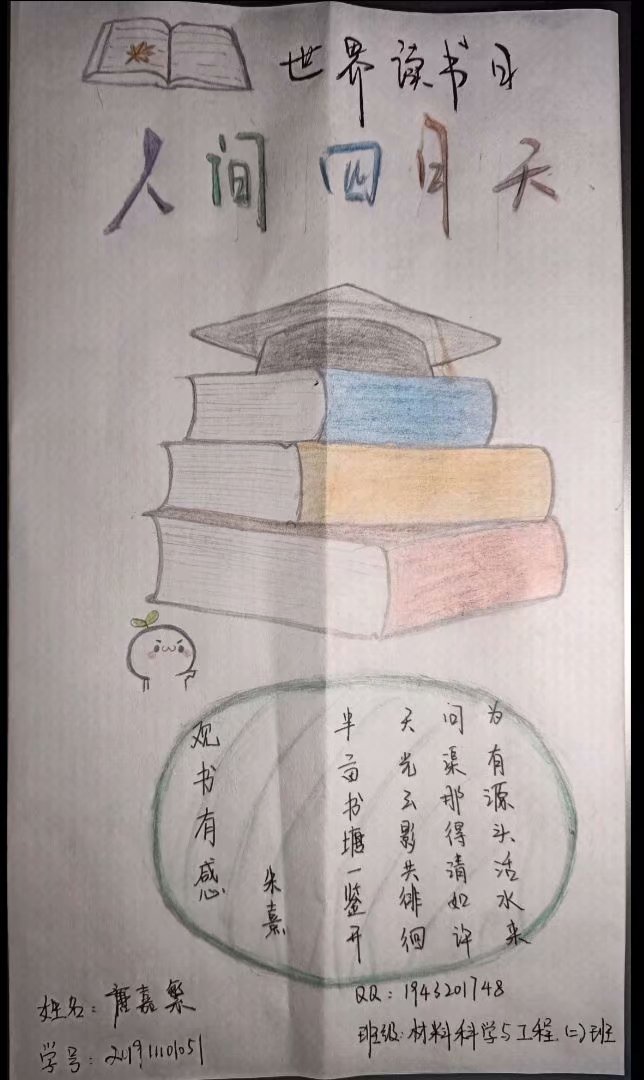 世界读书日
人间四月天
观书有感
朱熹
半亩书塘一鉴开
天光云影共徘徊
问渠那得清如许
为有源头活水来
姓名：嘉繁
QQ：1943201748
学号：201911101051
班级：材料科学与工程（二）班